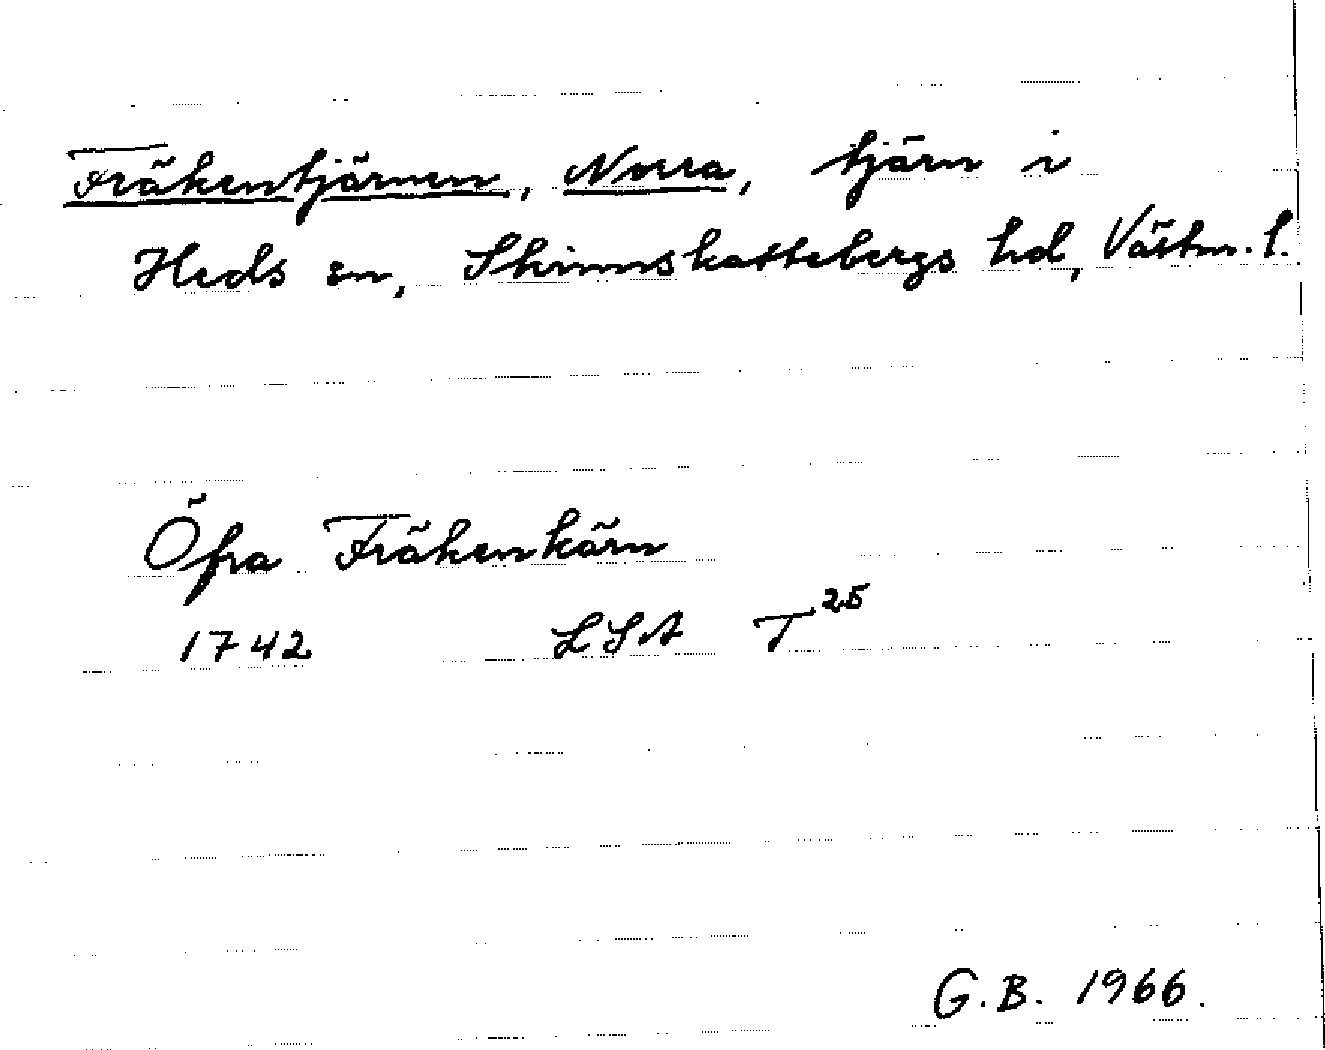 Fräkentjärnen, Norra, tjärn i
Heds sn, Skinnskattebergs hd, Västm. l.
Öfra Fräkenkärn
1742 LSA T25
G.B. 1966.